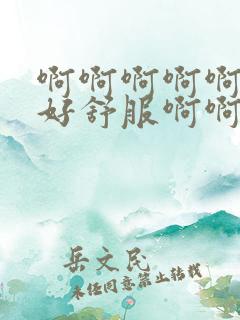 啊啊啊啊啊
好舒服啊啊
岳文民
未经同意禁止转载